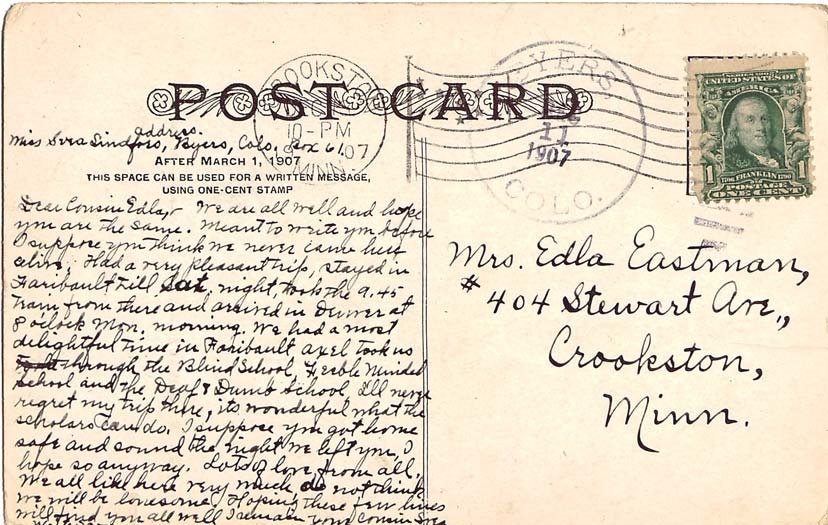 POST CARD
CROOKSTON
10-PM
07
MINN.
BYERS,
11
1907
COLO.
SERIES 1902
UNITED STATES OF
AMERICA
1 1
1706 FRANKLIN 1790
POSTAGE
ONE CENT
address.
Miss Svea Sindfors, Byers, Colo, Box 61.
AFTER MARCH 1, 1907
THIS SPACE CAN BE USED FOR A WRITTEN MESSAGE,
USING ONE-CENT STAMP
Dear Cousin Edla,- We are all well and hope
you are the same. Meant to write you before
I suppose you think we never came here
alive. Had a very pleasant trip, stayed in
Faribault till Sat. night, took the 9.45
train from there and arrived in Denver at
8 oclock Mon. morning. We had a most
delightful time in Faribault Axel took us
through the Blind School, Feeble Minded
School and the Deaf & Dumb School, I'll never
regret my trip there, its wonderful what the
scholars can do. I suppose you got home
safe and sound the night we left you, I
hope so anyway. Lots of love from all.
We all like here very much do not think
we will be lonesome. Hoping these few lines
will find you all well I remain your cousin Svea
Mrs. Edla Eastman,
# 404 Stewart Ave.,
Crookston,
Minn.